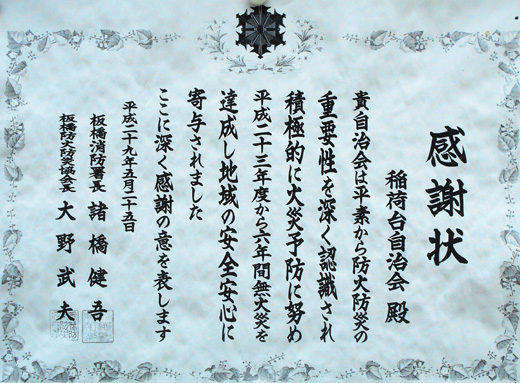 感謝状
稲荷台自治会 殿
貴自治会は平素から防火防災の
重要性を深く認識され
積極的に火災予防に努め
平成二十三年度から六年間無火災を
達成し地域の安全安心に
寄与されました
ここに深く感謝の意を表します
平成二十九年五月二十五日
板橋消防署長 諸橋健吾
板橋防火防災協会長 大野武夫